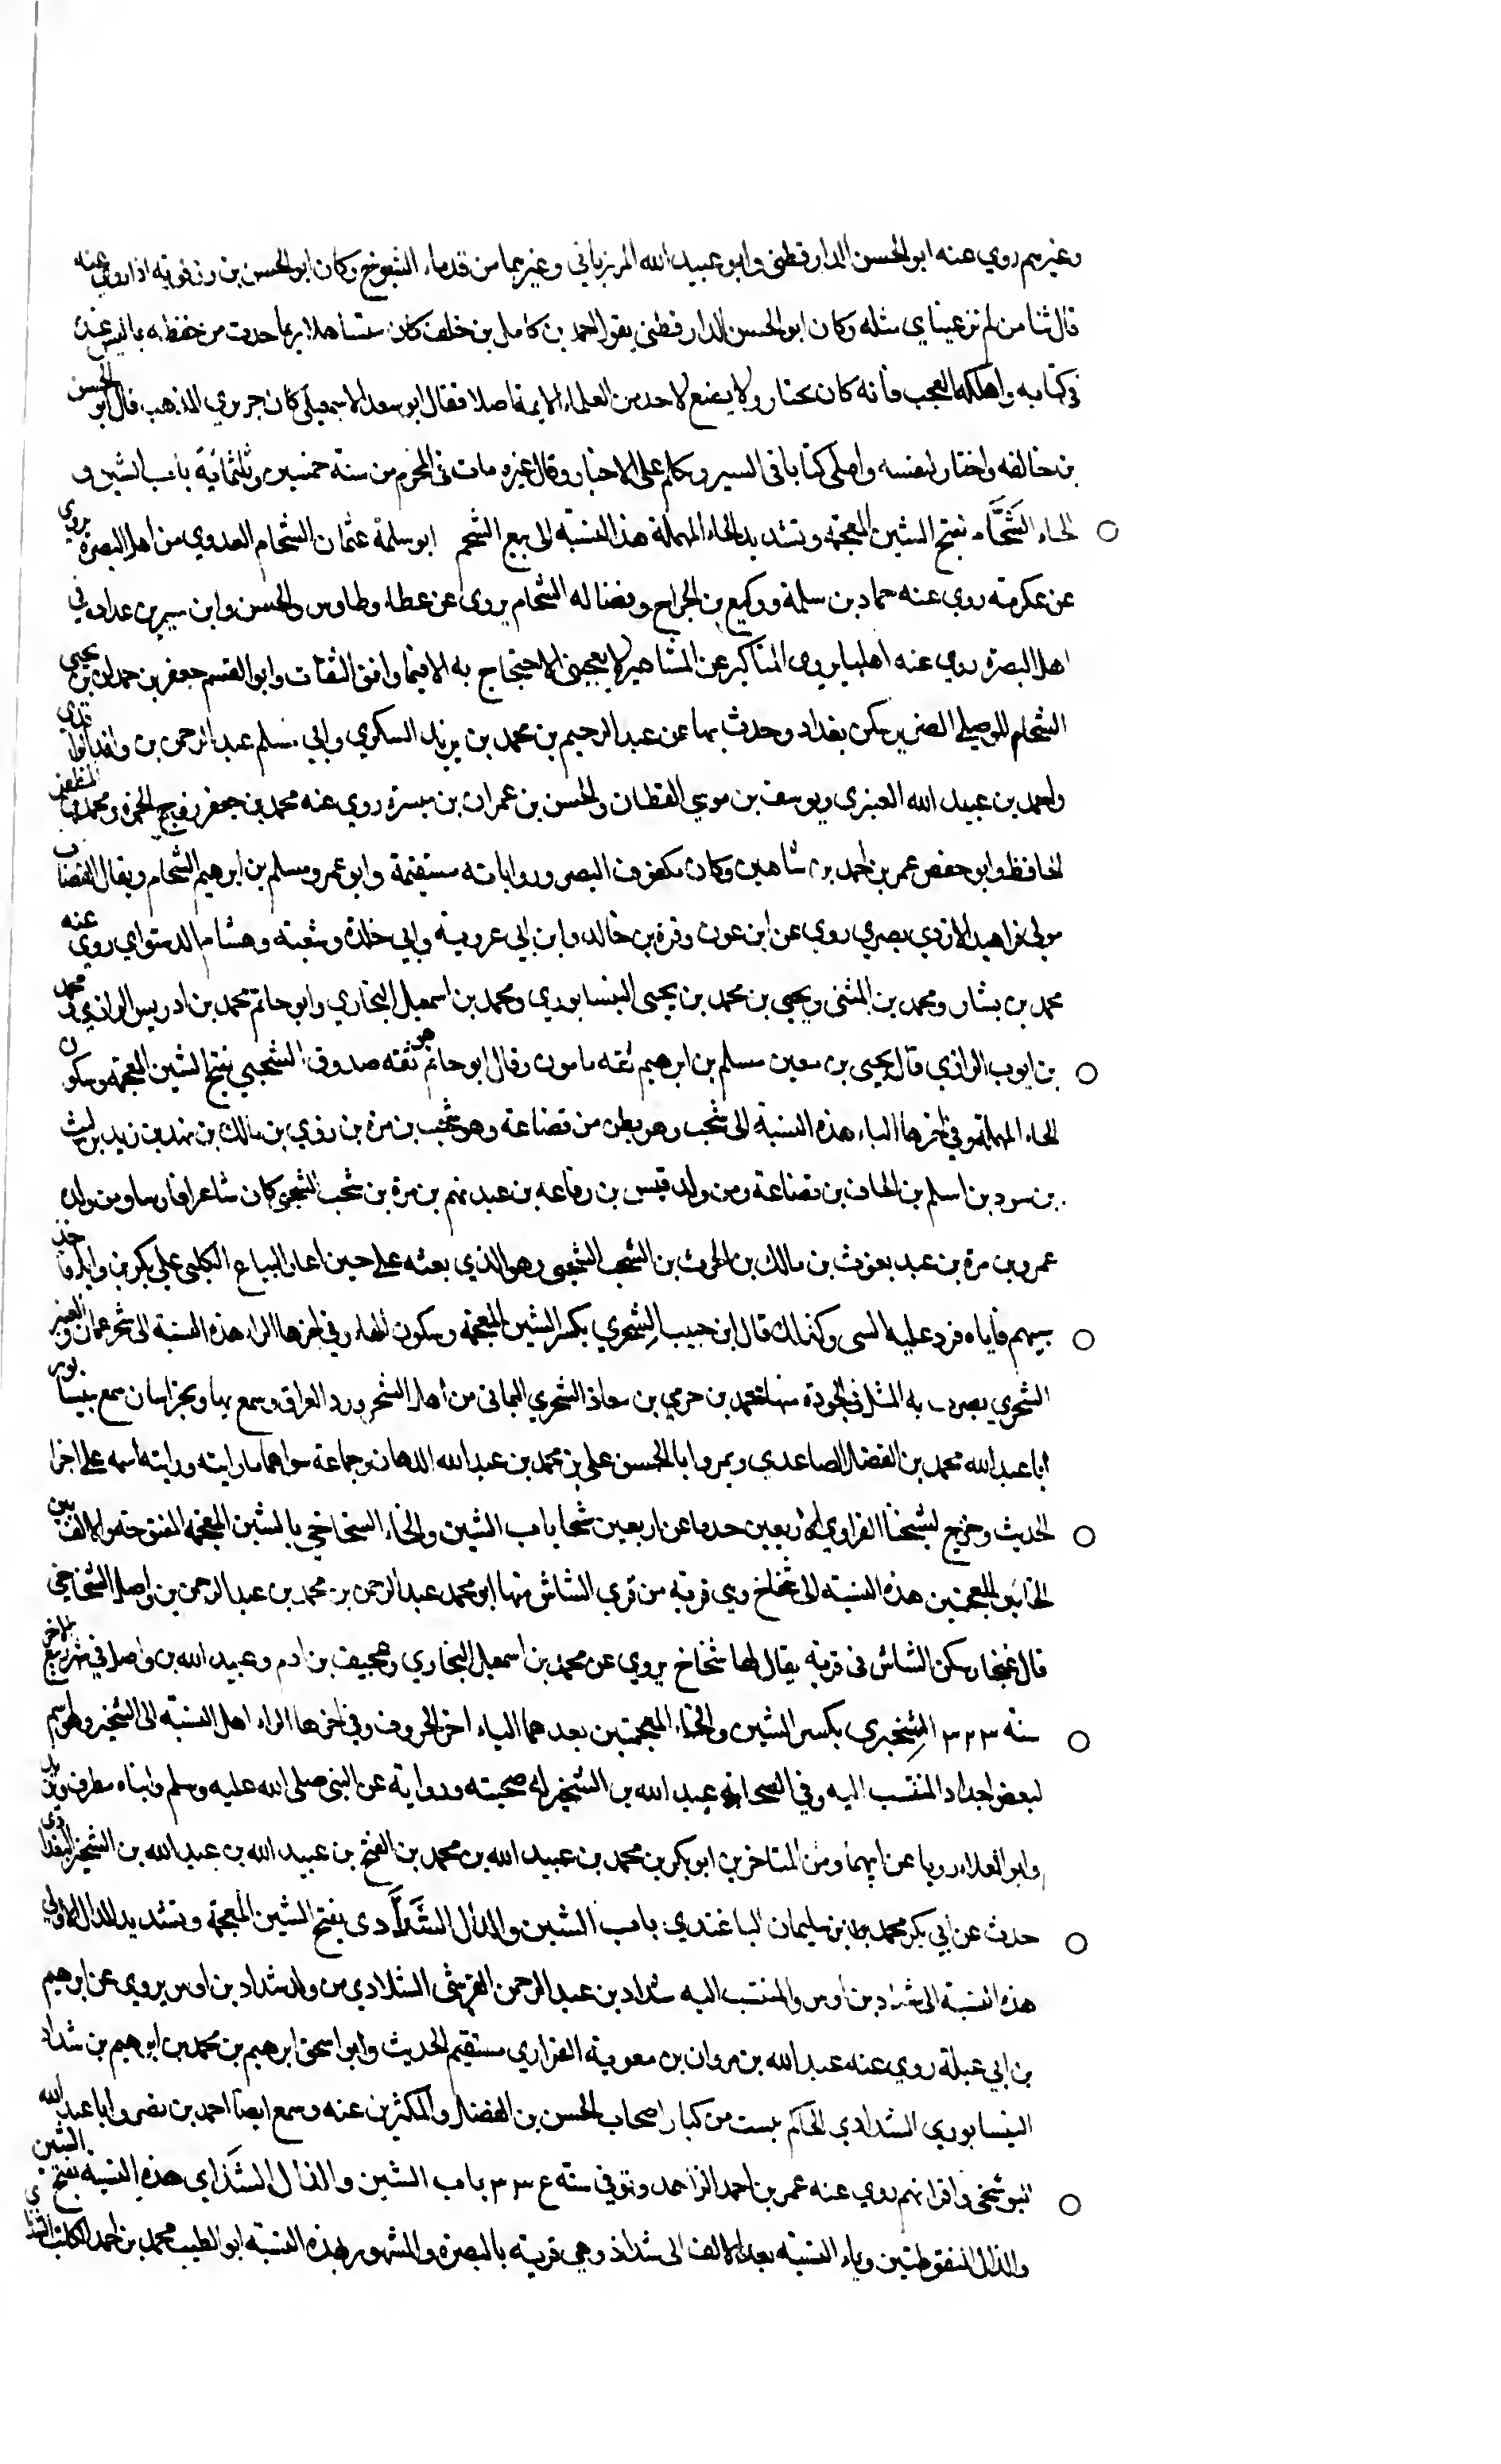 وغيرهم روي عنه ابو الحسن الدارقطني وابو عبيد الله المرزباني وغيرهما من قدماء الشيوخ وكان ابو الحسن بن رزقويه اذا روي عنه
قال ثنا من لم تر عيناي مثله وكان ابو الحسن الدارقطني يقول احمد بن كامل بن خلف كان متساهلا ربما حدث من حفظه بما ليس عنده
في كتابه واهلكه العجب فانه كان يختار ولا يضع لاحد من العلماء الايمة اصلا فقال ابو سعد الاسمعيلي كان جريري المذهب قال ابو الحسن
بن خالفه واختار لنفسه واملى كتابا في السير وتكلم على الاخبار وقال غيره مات في المحرم من سنة خمسين وثلثمائة باب الشين و
الحاء الشَحَّام بفتح الشين المعجمة وتشديد الحاء المهملة هذه النسبة الى بيع الشحم ابو سلمة عثمان الشحام العدوي من اهل البصرة يروي
عن عكرمة روي عنه حماد بن سلمة ووكيع بن الجراح وفضاله الشحام يروي عن عطاء وطاوس والحسن وابن سيرين عداده في
اهل البصرة روي عنه اهلها يروي المناكير عن المشاهير لا يعجبني الاحتجاج به الا فيما وافق الثقات وابو القسم جعفر بن حمدان بن يحيى
الشحام الموصلي الضرير سكن بغداد وحدث بها عن عبد الرحيم بن محمد بن يزيد السكوي وابي مسلم عبد الرحمن بن واقد الواقدي
واحمد بن عبيد الله العنبري ويوسف بن موسي القطان والحسن بن عمران بن ميسرة روي عنه محمد بن جعفر زوج الحرة ومحمد بن المظفر
الحافظ وابو حفص عمر بن احمد بن شاهين وكان مكفوف البصر ورواياته مستقيمة وابو عمرو مسلم بن ابرهيم الشحام ويقال القصاب
مولى فراهيد الازدي بصري روي عن ابن عون وقرة بن خالد وابن ابي عروبة وابي خلدة وشعبة وهشام الدستواي روي عنه
محمد بن بشار ومحمد بن المثنى ويحيى بن محمد بن يحيى النيسابوري ومحمد بن اسمعيل البخاري وابو حاتم محمد بن ادريس الرازي ومحمد
بن ايوب الرازي قال يحيى بن معين مسلم بن ابرهيم ثقه مامون وقال ابو حاتم هو ثقه صدوق الشحبي بفتح الشين المعجمه وسكون
الحاء المهملة وفي اخرها الباء هذه النسبة الى شحب وهو بطن من قضاعة وهو شحب بن مرة بن زوي بن مالك بن نهد بن زيد بن ليث
بن سود بن اسلم بن الحاف بن قضاعة ومن ولده قيس بن رفاعه بن عبد نهم بن مرة بن شحب الشحبي كان شاعرا فارسا ومن ولده
عمرو بن مرة بن عبد يغوث بن مالك بن الحرث بن الشحب الشحبي وهو الذي بعثه علي حين اغار البياع الكلبي علي بكر بن وايل فاخذ
سبيهم فاتاه فرد عليه السبي وكذلك قال ابن حبيب الشِحري بكسر الشين المعجمة وسكون الحاء وفي اخرها الراء هذه النسبة الى شحر عمان والعنبر
الشحري يضرب به المثل في الجودة منها محمد بن حرمي بن معاذ الشحري اليماني من اهل الشحر ورد العراق وسمع بها وبخراسان سمع بنيسابور
ابا عبد الله محمد بن الفضل الصاعدي وبمرو ابا الحسن علي بن محمد بن عبد الله الدهان وجماعة سواهما ما رايته ورايت اسمه على اجزا
الحديث وخرج لشيخنا الفراوي اربعين حديثا عن اربعين شيخا باب الشين والخاء الشخاخي بالشين المعجمه المفتوحة والالف بين
الخائين المعجمتين هذه النسبة الى شخاخ وهي قرية من قري الشاش منها ابو محمد عبد الرحمن بن محمد بن عبد الرحمن بن واصل الشخاخي
قال غنجار سكن الشاش في قرية يقال لها شخاخ يروي عن محمد بن اسمعيل البخاري وعجيف بن ادم وعبيد الله بن واصل في شهر ربيع الاخر
سنه ٣٢٣ الشِخيري بكسر الشين والخاء المعجمتين بعدهما الياء اخر الحروف وفي اخرها الراء اهل النسبة الى الشخير وهو اسم
لبعض اجداد المنتسب اليه وفي الصحابة عبد الله بن الشخير له صحبته ورواية عن النبي صلى الله عليه وسلم وابناه مطرف ويزيد
وابو العلاء رويا عن ابيهما ومن المتاخرين ابو بكر بن محمد بن عبيد الله بن محمد بن الفتح بن عبيد الله بن عبد الله بن الشخير البغدادي
حدث عن ابي بكر محمد بن سليمان الباغندي باب الشين والدال الشَدَّادي بفتح الشين المعجمة وتشديد الدال الاولي
هذه النسبة الى شداد بن اوس والمنتسب اليه شداد بن عبد الرحمن القرشي الشدادي من ولد شداد بن اوس يروي عن ابرهيم
بن ابي عبلة روي عنه عبد الله بن مروان بن معوية الفزاري مستقيم الحديث وابو اسحق ابرهيم بن محمد بن ابرهيم بن شداد
النيسابوري الشدادي الحاكم ببست من كبار اصحاب الحسن بن الفضل والمكثرين عنه وسمع ايضا احمد بن نصر وابا عبد الله
البوشنجي واقرانهم روي عنه عمر بن احمد الزاهد وتوفي سنة ٣٣٤ باب الشين والذال الشَذَاي هذه النسبه بفتح الشين
والذال المنقوطتين وياء النسبة بعد الالف الى شذاذ وهي قرية بالبصرة والمشهور بهذه النسبة ابو الطيب محمد بن احمد الكاتب الشذاي